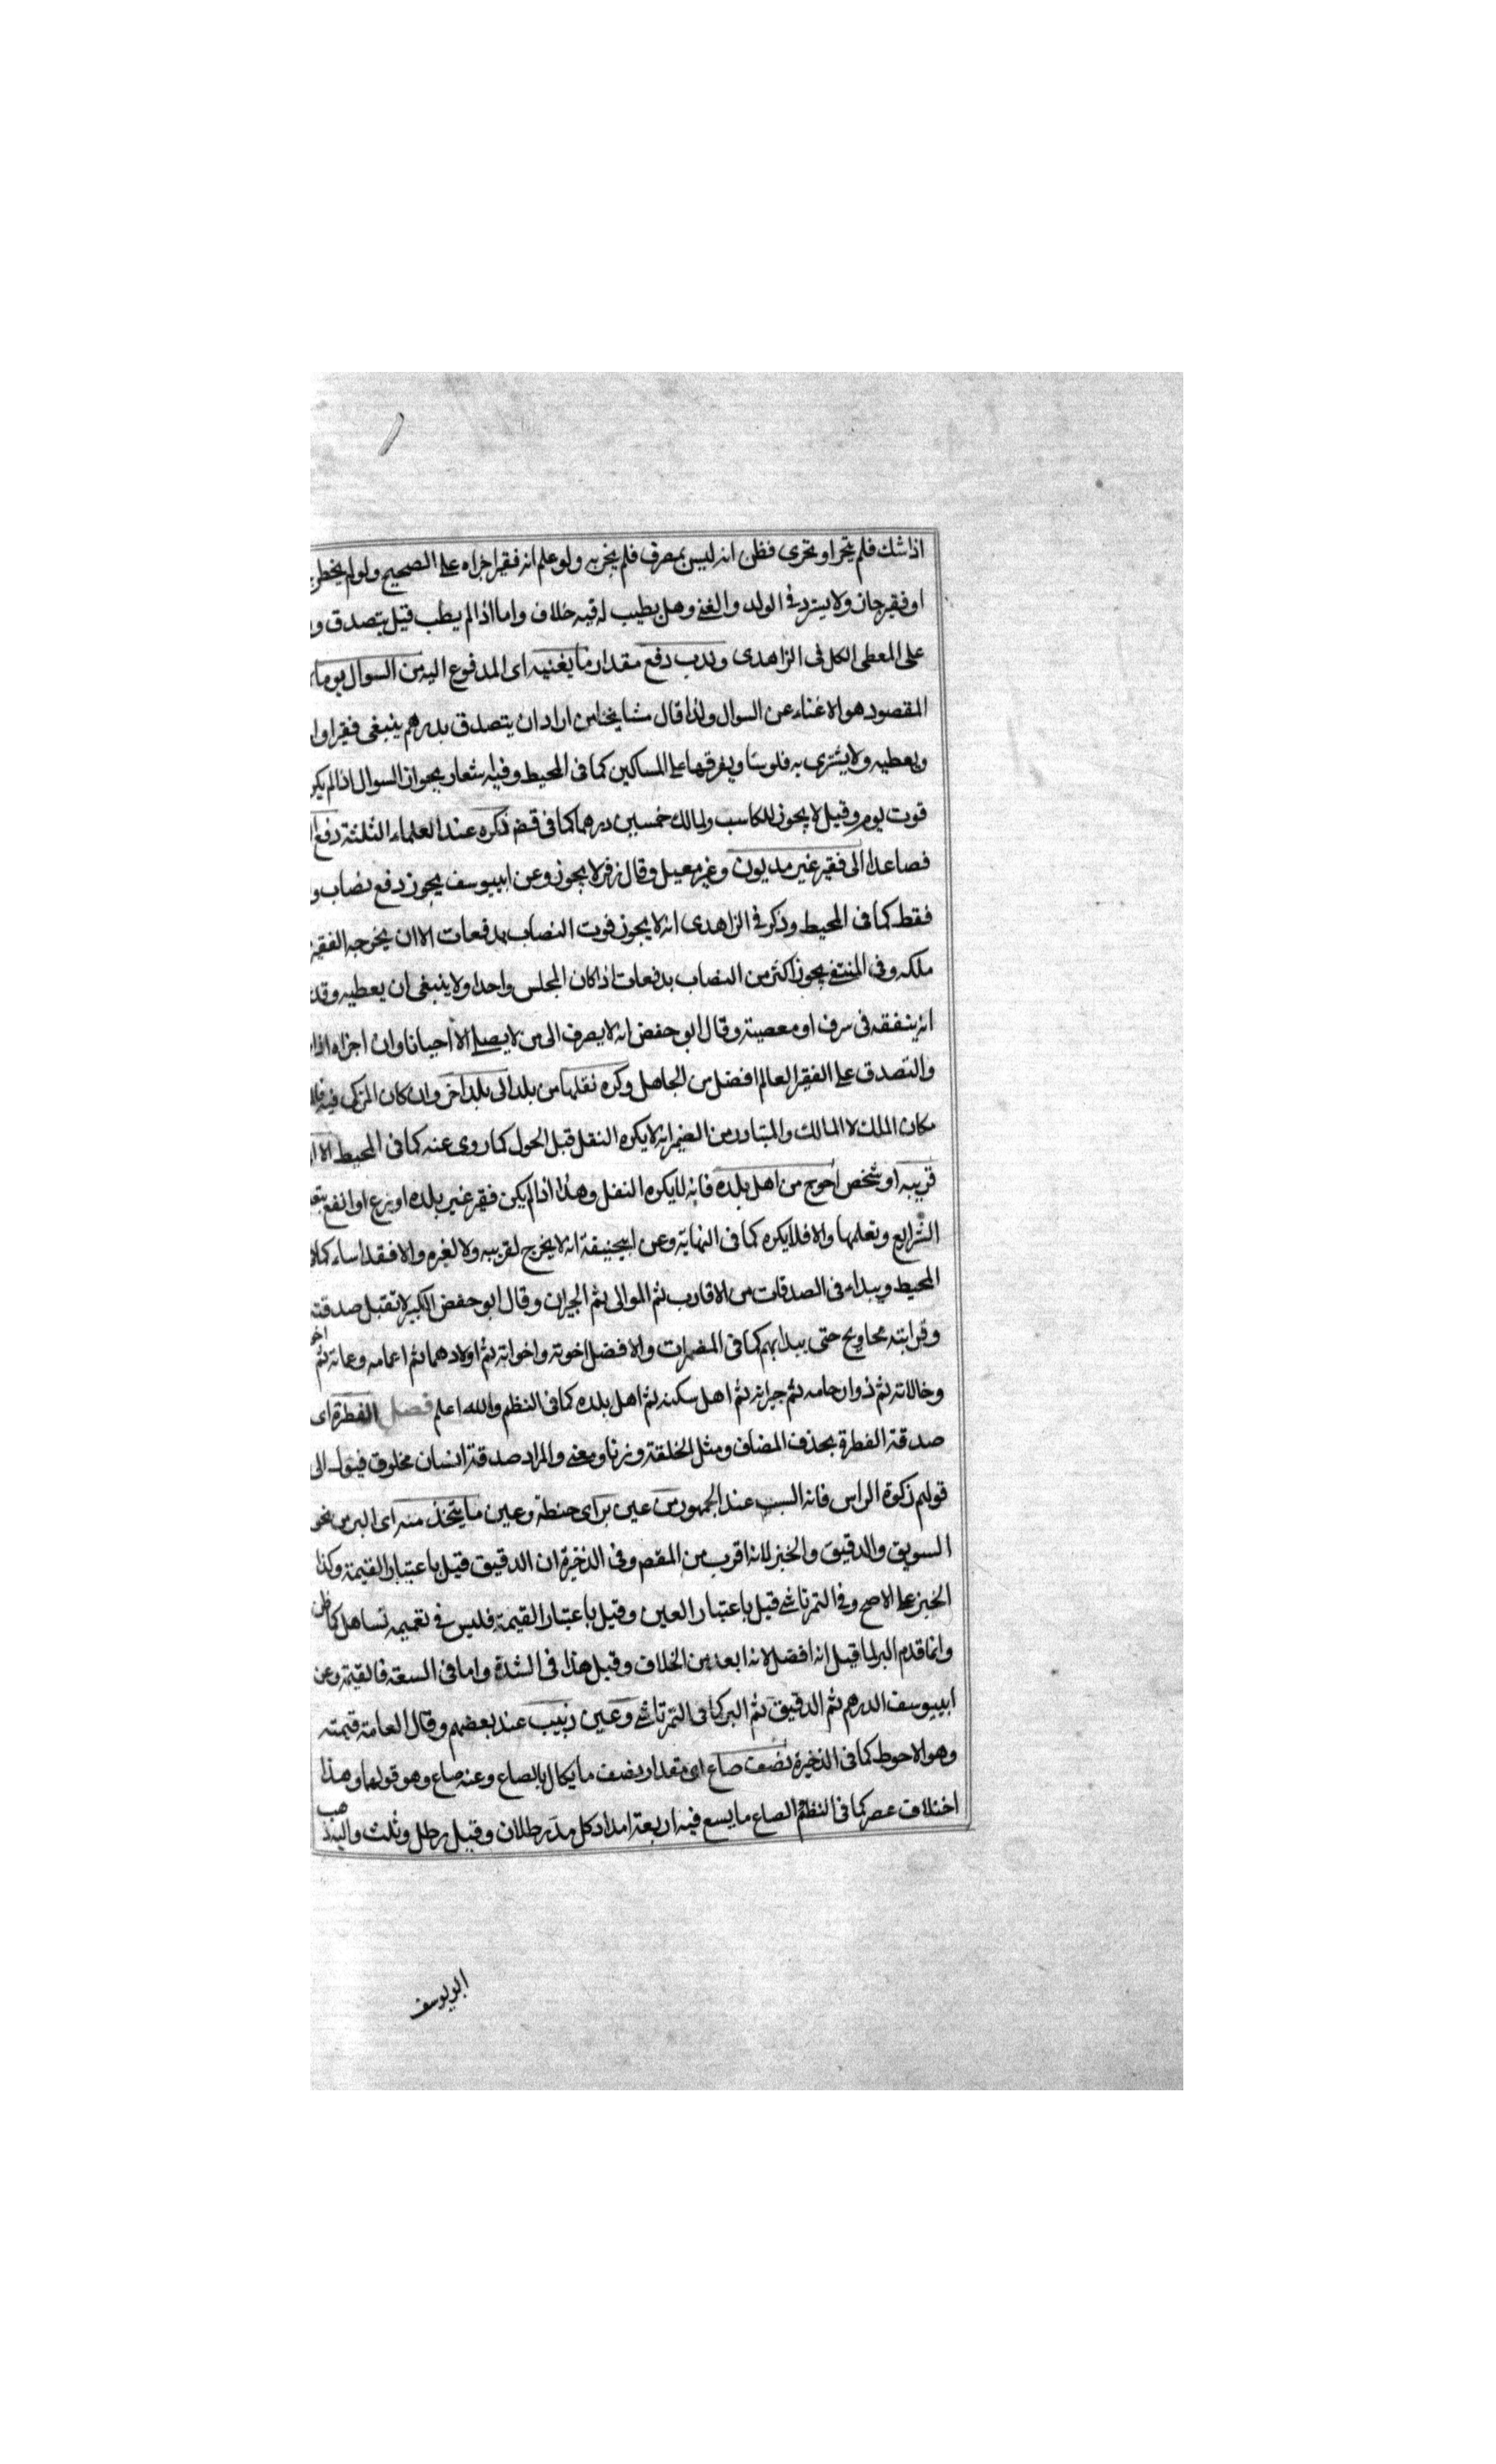 اذا شك فلم يتحر او تحرى فظن انه ليس بمصرف فلم يجزيه ولو علم انه فقير اجزاه على الصحيح ولو لم يخطر
او فقير جاز ولا يسترد في الولد والغني وهل يطيب له فيه خلاف واما اذا لم يطب قيل يتصدق و
على المعطى الكل في الزاهدى وندب دفع مقدار ما يغنيه اى المدفوع اليه من السوال يوما
المقصود هو الاغناء عن السوال ولذا قال مشايخنا من اراد ان يتصدق بدرهم ينبغى فقيرا وا
ويعطيه ولا يشترى به فلوسا ويفرقها على المساكين كما فى المحيط وفيه اشعار بجواز السوال اذا لم يكن
قوت يوم وقيل لا يجوز للكاسب ولمالك خمسين درهما كما فى ذكره عند العلماء الثلثة دفع
فصاعدا الى فقير غير مديون وغير معيل وقال زفر لا يجوز وعن ابييوسف يجوز دفع نصاب و
فقط كما فى المحيط وذكر في الزاهدى انه لا يجوز فوت النصاب بدفعات الا ان يخرجه الفقير
ملكه وفى المنتقى يجوز اكثر من النصاب بدفعات اذا كان المجلس واحدا ولا ينبغى ان يعطيه وقد
انه ينفقه فى سرف او معصية وقال ابو حفص انه لا يصرف الى من لا يصلى الا احيانا وان اجزاه
والتصدق على الفقير العالم افضل من الجاهل وكره نقلها من بلد الى بلد اخر وان كان المزكى فيه
مكان الملك لا المالك والمتبادر من الضمير انه لا يكره النقل قبل الحول كما روى عنه كما فى المحيط الا
قريبه او شخص احوج من اهل بلده فانه لا يكره النقل وهذا اذا لم يكن فقير غير بلده اورع او انفع
الشرايع وتعلمها والا فلا يكره كما فى النهاية وعن ابيحنيفة انه لا يخرج لقريبه ولا لغيره والا فقد اساء كما
المحيط ويبداء فى الصدقات من الاقارب ثم الموالى ثم الجيران وقال ابو حفص الكبير لا تقبل صدقته
وقرابته محاويج حتى يبدا بهم كما فى المضمرات والافضل اخوته واخواته ثم اولادهما ثم اعمامه وعماته ثم
وخالاته ثم ذو ارحامه ثم جيرانه ثم اهل سكنه ثم اهل بلده كما فى النظم والله اعلم فصل الفطرة اى
صدقة الفطرة بحذف المضاف ومثل الخلقة وزنا ومعنى والمراد صدقة انسان مخلوق فيئول الى
قولهم زكوة الراس فانه السبب عند الجمهور من عين بر اى حنطة وعين ما يتخذ منه اى البر من نحو
السويق والدقيق والخبز لانه اقرب من المقصم وفى الذخيرة ان الدقيق قيل باعتبار القيمة وكذا
الخبز على الاصح وفى التمرتاشى قيل باعتبار العين وقيل باعتبار القيمة فليس فى تعميمه تساهل كما ظن
وانما قدم البر لما قيل انه افضل لانه ابعد من الخلاف وقيل هذا فى الشدة واما فى السعة فالقيمة وعن
ابييوسف الدرهم ثم الدقيق ثم البر كما فى التمرتاشى وعين زبيب عند بعضهم وقال العامة قيمته
وهو الاحوط كما فى الذخيرة نصف صاع اى مقدار نصف ما يكال بالصاع وعنه صاع وهو قولهما وهذا
اختلاف عصر كما فى النظم الصاع ما يسع فيه اربعة امداد كل مد رطلان وقيل رطل وثلث واليه ذهب
ابو يوسف